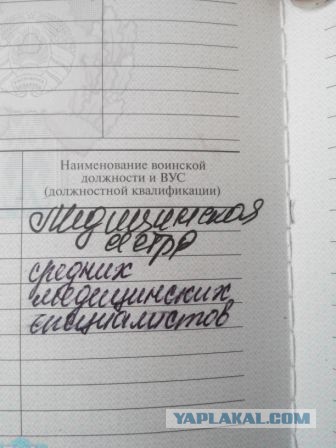 Наименование воинской
должности и ВУС
(должностной квалификации)
Медицинская
сестра
средних
медицинских
специалистов
YAPLAKAL.COM